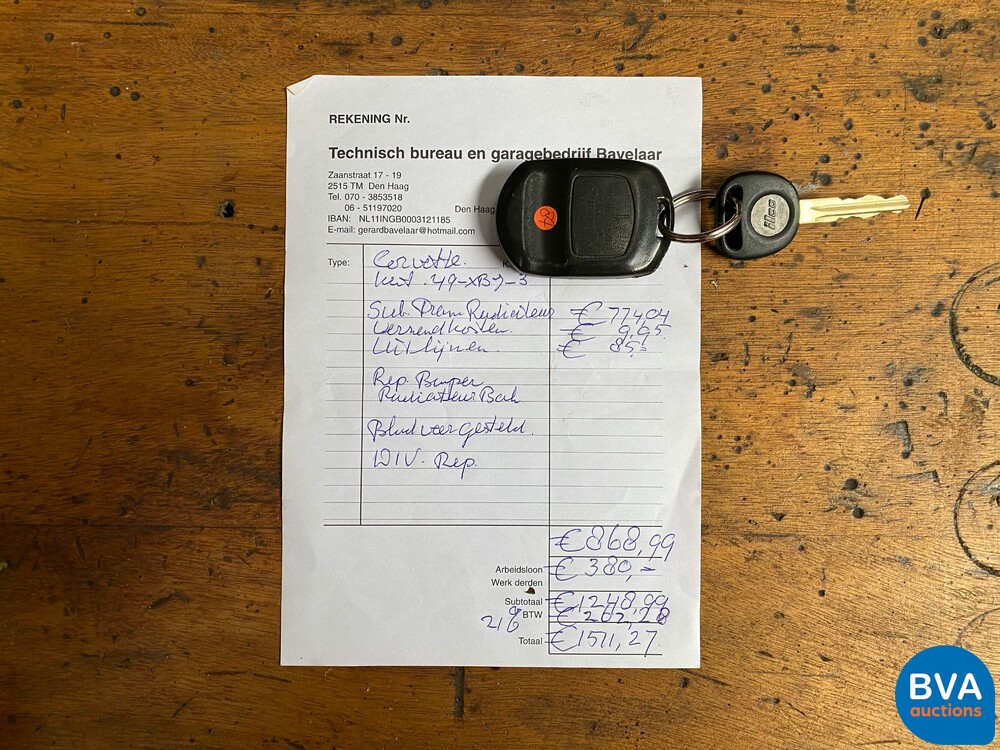 REKENING Nr.
Technisch bureau en garagebedrijf Bavelaar
Zaanstraat 17 - 19
2515 TM Den Haag
Tel. 070 - 3853518
06 - 51197020
Den Haag
IBAN: NL11INGB0003121185
E-mail: gerardbavelaar@hotmail.com
Type: Corvette.
Kent. 49-XBJ-3
Sub. Pram Radiateur € 774,04
Verzendkosten. € 9,95
Uitlijnen. € 85,=
Rep. Bumper
Radiateur Bak
Blad versteld.
DIV. Rep.
€ 868,99
Arbeidsloon € 380,-
Werk derden
Subtotaal € 1248,99
21% BTW € 262,28
Totaal € 1511,27
84
ilco
BVA
auctions